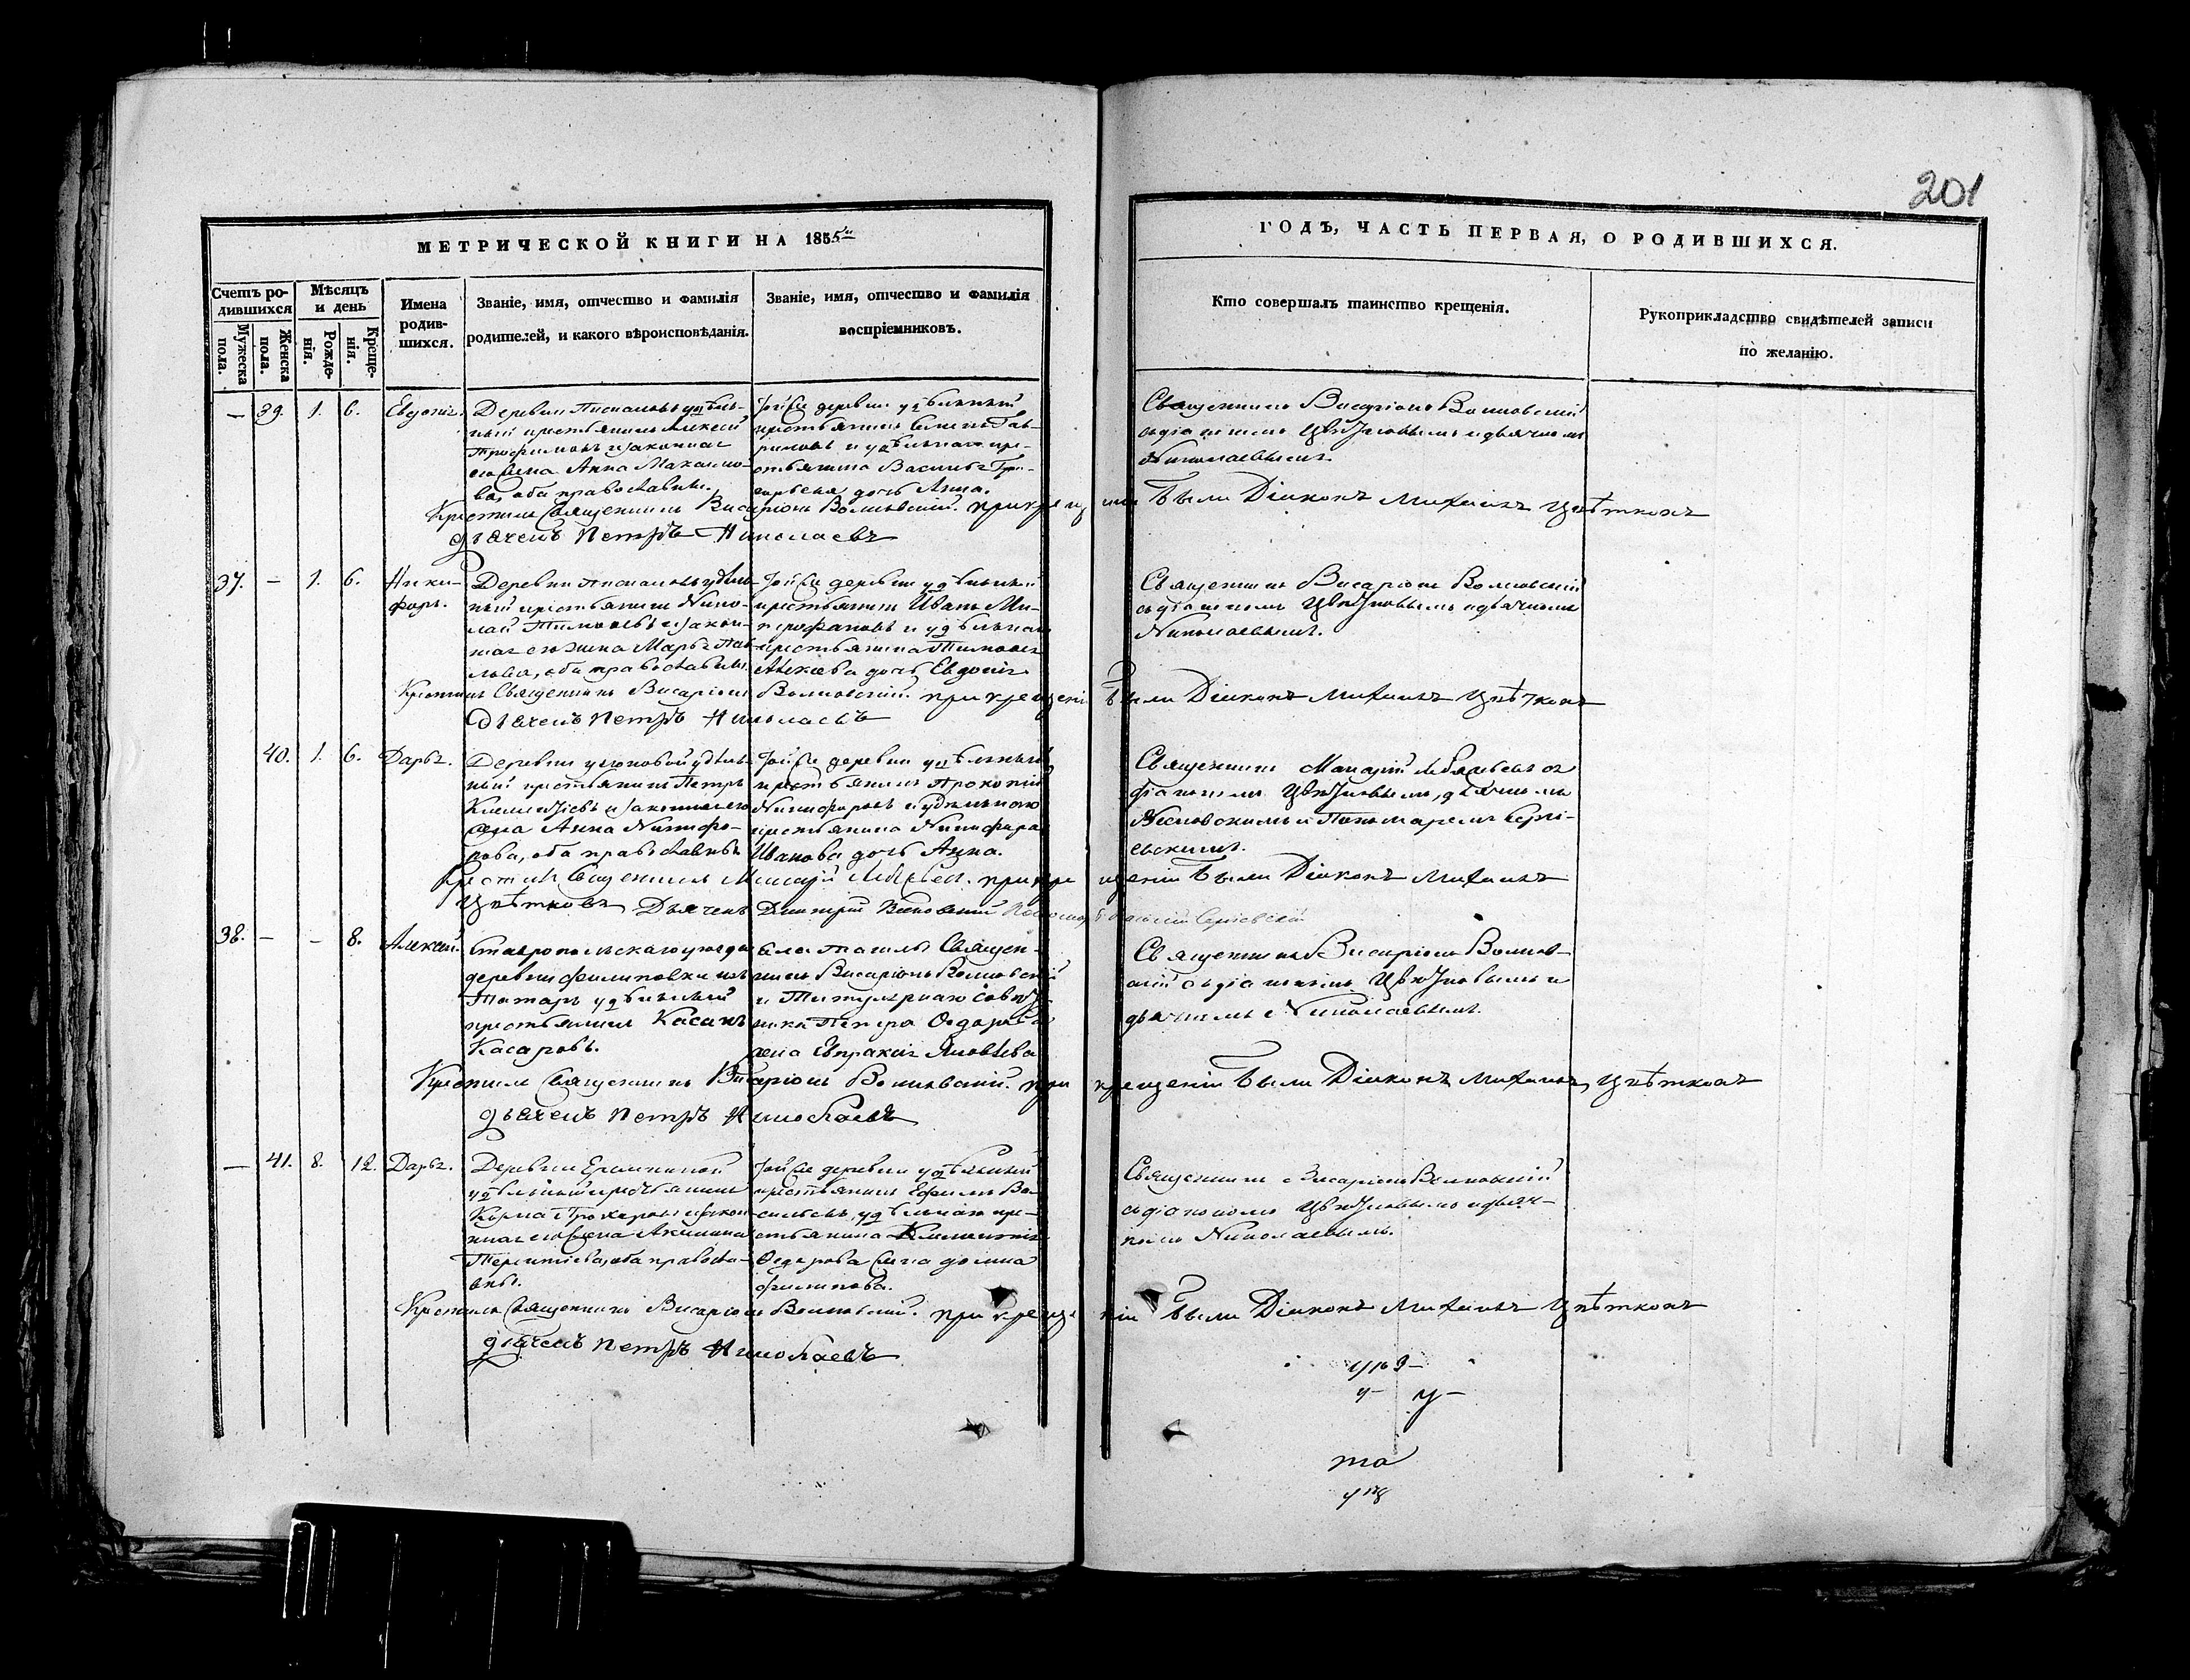 201
МЕТРИЧЕСКОЙ КНИГИ НА 1855й
ГОДЪ, ЧАСТЬ ПЕРВАЯ, О РОДИВШИХСЯ.
Счетъ ро-
дившихся
Мужеска
пола.
Женска
пола.
Мѣсяцъ
и день
Рожде-
нія.
Креще-
нія.
Имена
родив-
шихся.
Званіе, имя, отчество и фамилія
родителей, и какого вѣроисповѣданія.
Званіе, имя, отчество и фамилія
воспріемниковъ.
Кто совершалъ таинство крещенія.
Рукоприкладство свидѣтелей записи
по желанію.
— 39. 1. 6.
Деревни удѣль-
ный крестьянинъ Алексій
Трофимовъ и законная
его жена Анна Максимо-
ва, оба православны.
Той же деревни удѣльный
крестьянинъ Гав-
риловъ и удѣльнаго кре-
стьянина Василья Гри-
горьева дочь Анна.
Священникъ Висаріонъ
съ діакономъ Цвѣтковымъ и дьячкомъ
Николаевымъ.
Крестилъ Священникъ Висаріонъ при крещеніи были Діаконъ Михаилъ Цвѣтковъ
дьячекъ Петръ Николаевъ
37. — 1. 6.
Ники-
форъ.
Деревни удѣль-
ный крестьянинъ Нико-
лай Тимофеевъ и закон-
ная его жена Марья Пав-
лова, оба православны.
Той же деревни удѣльный
крестьянинъ Иванъ Ми-
трофановъ и удѣльнаго
крестьянина Тимофея
Алексѣева дочь Евдокія
Священникъ Висаріонъ
съ діакономъ Цвѣтковымъ и дьячкомъ
Николаевымъ.
Крестилъ Священникъ Висаріонъ при крещеніи были Діаконъ Михаилъ Цвѣтковъ
Дьячекъ Петръ Николаевъ
40. 1. 6. Дарья.
Деревни удѣль-
ный крестьянинъ Петръ
Климентьевъ и законная его
жена Анна Никифо-
рова, оба православны
Той же деревни удѣльный
крестьянинъ Прокопій
Никифоровъ и удѣльнаго
крестьянина Никифора
Иванова дочь Анна.
Священникъ съ
діакономъ Цвѣтковымъ, дьячкомъ
и Пономаремъ Сергі-
евскимъ.
Крестилъ Священникъ при крещеніи были Діаконъ Михаилъ
Цвѣтковъ Дьячекъ Дмитрій Сергіевскій
38. — – 8. Алексій.
Ставропольскаго уѣзда
деревни Филиповки изъ
Татаръ удѣльный
крестьянинъ Касанъ
Касаровъ.
Села Ташлы Священ-
никъ Висаріонъ
и Титулярнаго Совѣт-
ника Петра Федорова
жена Евпраксія Яковлева
Священникъ Висаріонъ
съ діакономъ Цвѣтковымъ и
дьячкомъ Николаевымъ.
Крестилъ Священникъ Висаріонъ при крещеніи были Діаконъ Михаилъ Цвѣтковъ
дьячекъ Петръ Николаевъ
— 41. 8. 12. Дарья.
Деревни Еремкиной
удѣльный крестьянинъ
Козма Прохоровъ и закон-
ная его жена Акилина
Терентіева, оба православ-
ны.
Той же деревни удѣльный
крестьянинъ Ефимъ Ва-
сильевъ, удѣльнаго кре-
стьянина Климентія
Федорова жена Домна
Филипова.
Священникъ Висаріонъ
съ діакономъ Цвѣтковымъ и дьяч-
комъ Николаевымъ.
Крестилъ Священникъ Висаріонъ при крещеніи были Діаконъ Михаилъ Цвѣтковъ
дьячекъ Петръ Николаевъ
та